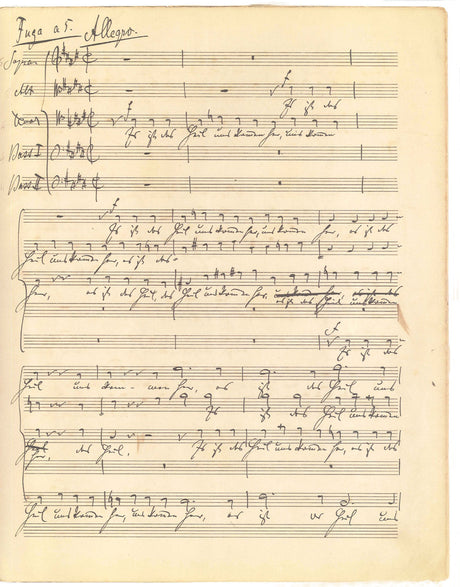 Fuga a 5. Allegro.
Sopran
Alt
Es ist das
Tenor
Es ist das Heil uns kommen her, uns kommen
Bass I
Bass II
Es ist das Heil uns kommen her, uns kommen her, es ist das
Heil uns kommen her, es ist das
her, es ist das Heil, das Heil uns kommen her, uns kommen her, es ist das
es ist das Heil uns kommen
Es ist das
Heil uns kom- men her, es ist das Heil uns
Es ist das Heil uns kommen
her, das Heil, Es ist das Heil uns kommen her, es ist das
Heil uns kommen her, uns kommen her, es ist das Heil uns